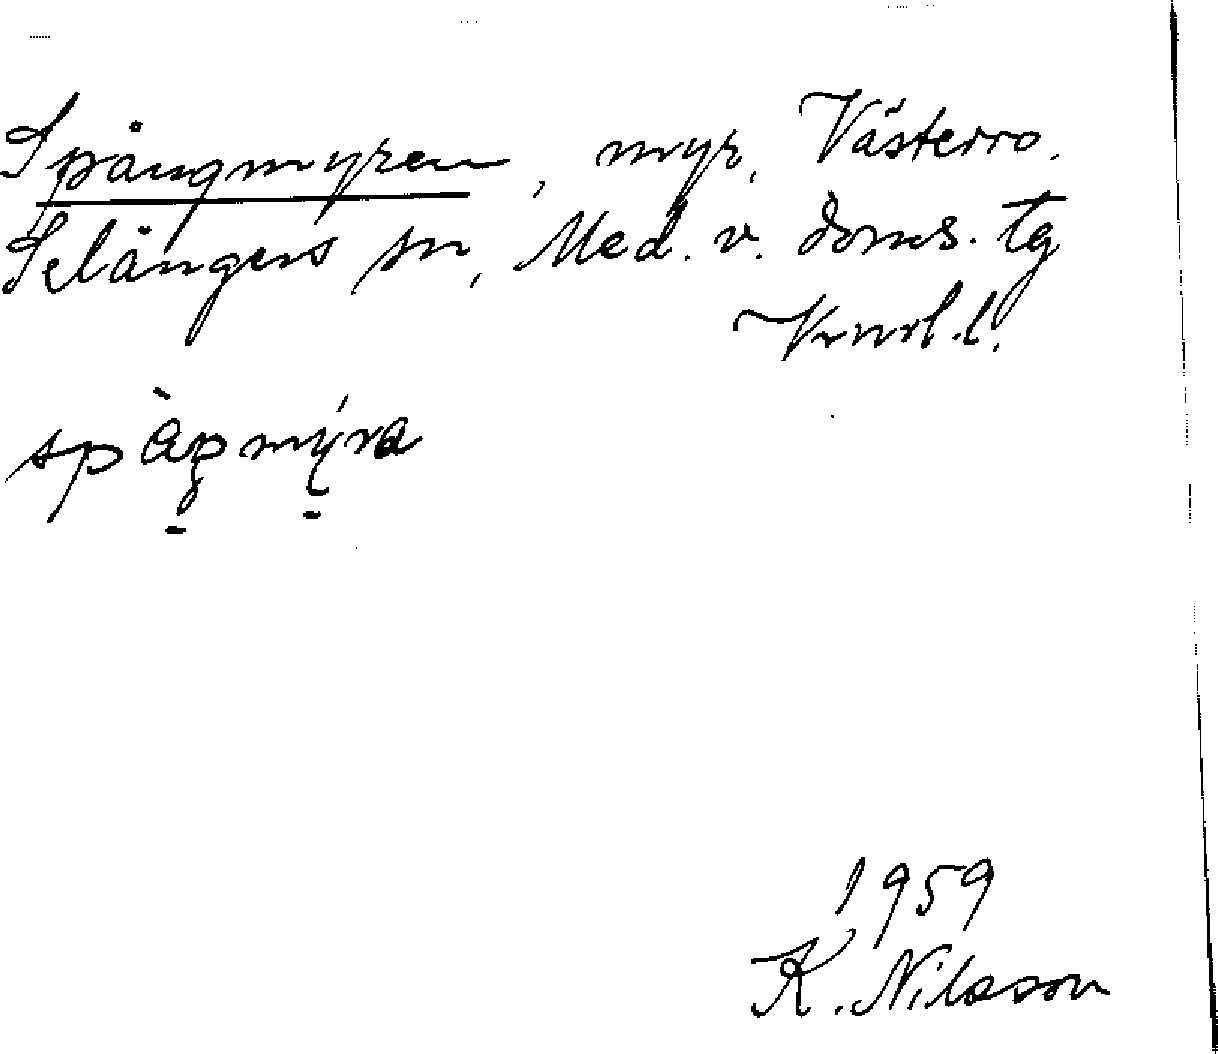 Spångmyren, myr, Västerro.
Selångers sn, Med. v. doms. tg
Vnrl. l.
spàŋmýra
1959
K. Nilsson